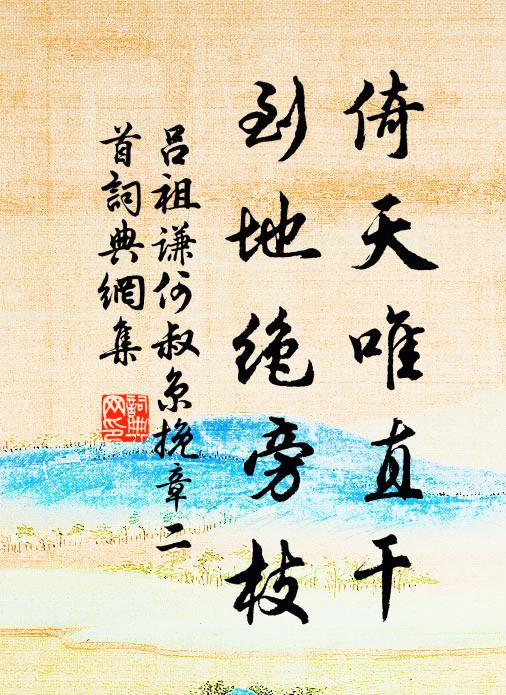 倚天唯直干
到地绝旁枝
吕祖谦何叔京挽章二
首詞典網集
詞典网印